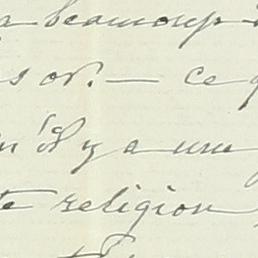 a beaucoup
s or. — ce q
n'il y a une
te religion